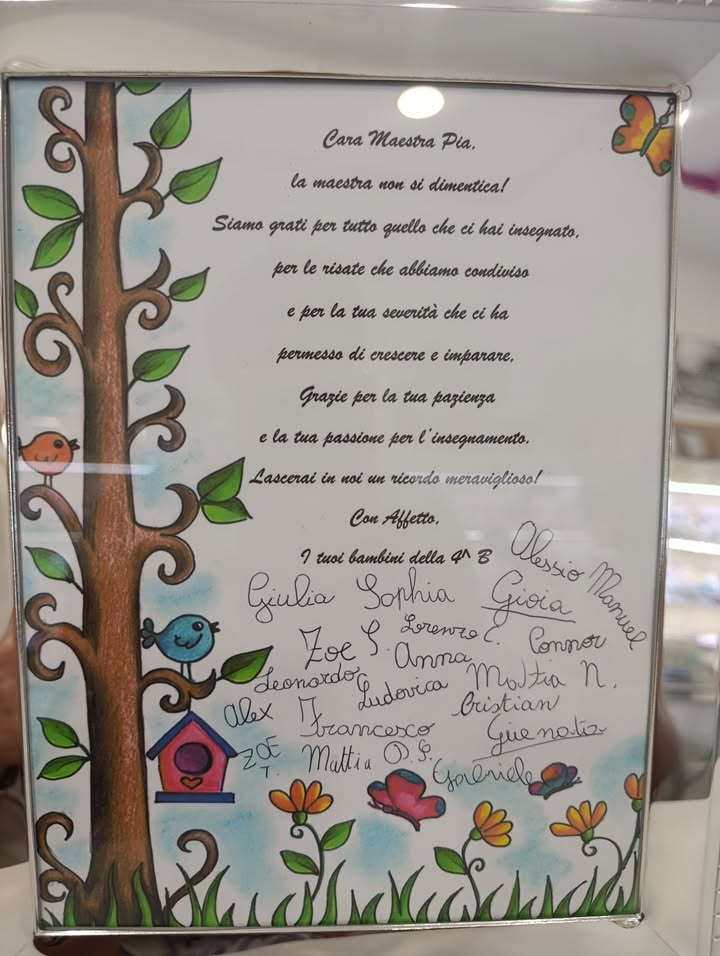 Cara Maestra Pia,
la maestra non si dimentica!
Siamo grati per tutto quello che ci hai insegnato,
per le risate che abbiamo condiviso
e per la tua severità che ci ha
permesso di crescere e imparare,
Grazie per la tua pazienza
e la tua passione per l'insegnamento.
Lascerai in noi un ricordo meraviglioso!
Con Affetto,
I tuoi bambini della 4^ B
Alessio Manuel
Giulia Sophia Gioia
Zoe S. Lorenzo C. Connor
Leonardo Anna
Ludovica Mattia N.
Alex M. Cristian
Francesco
ZOE T. Mattia D.S.
Gabriele